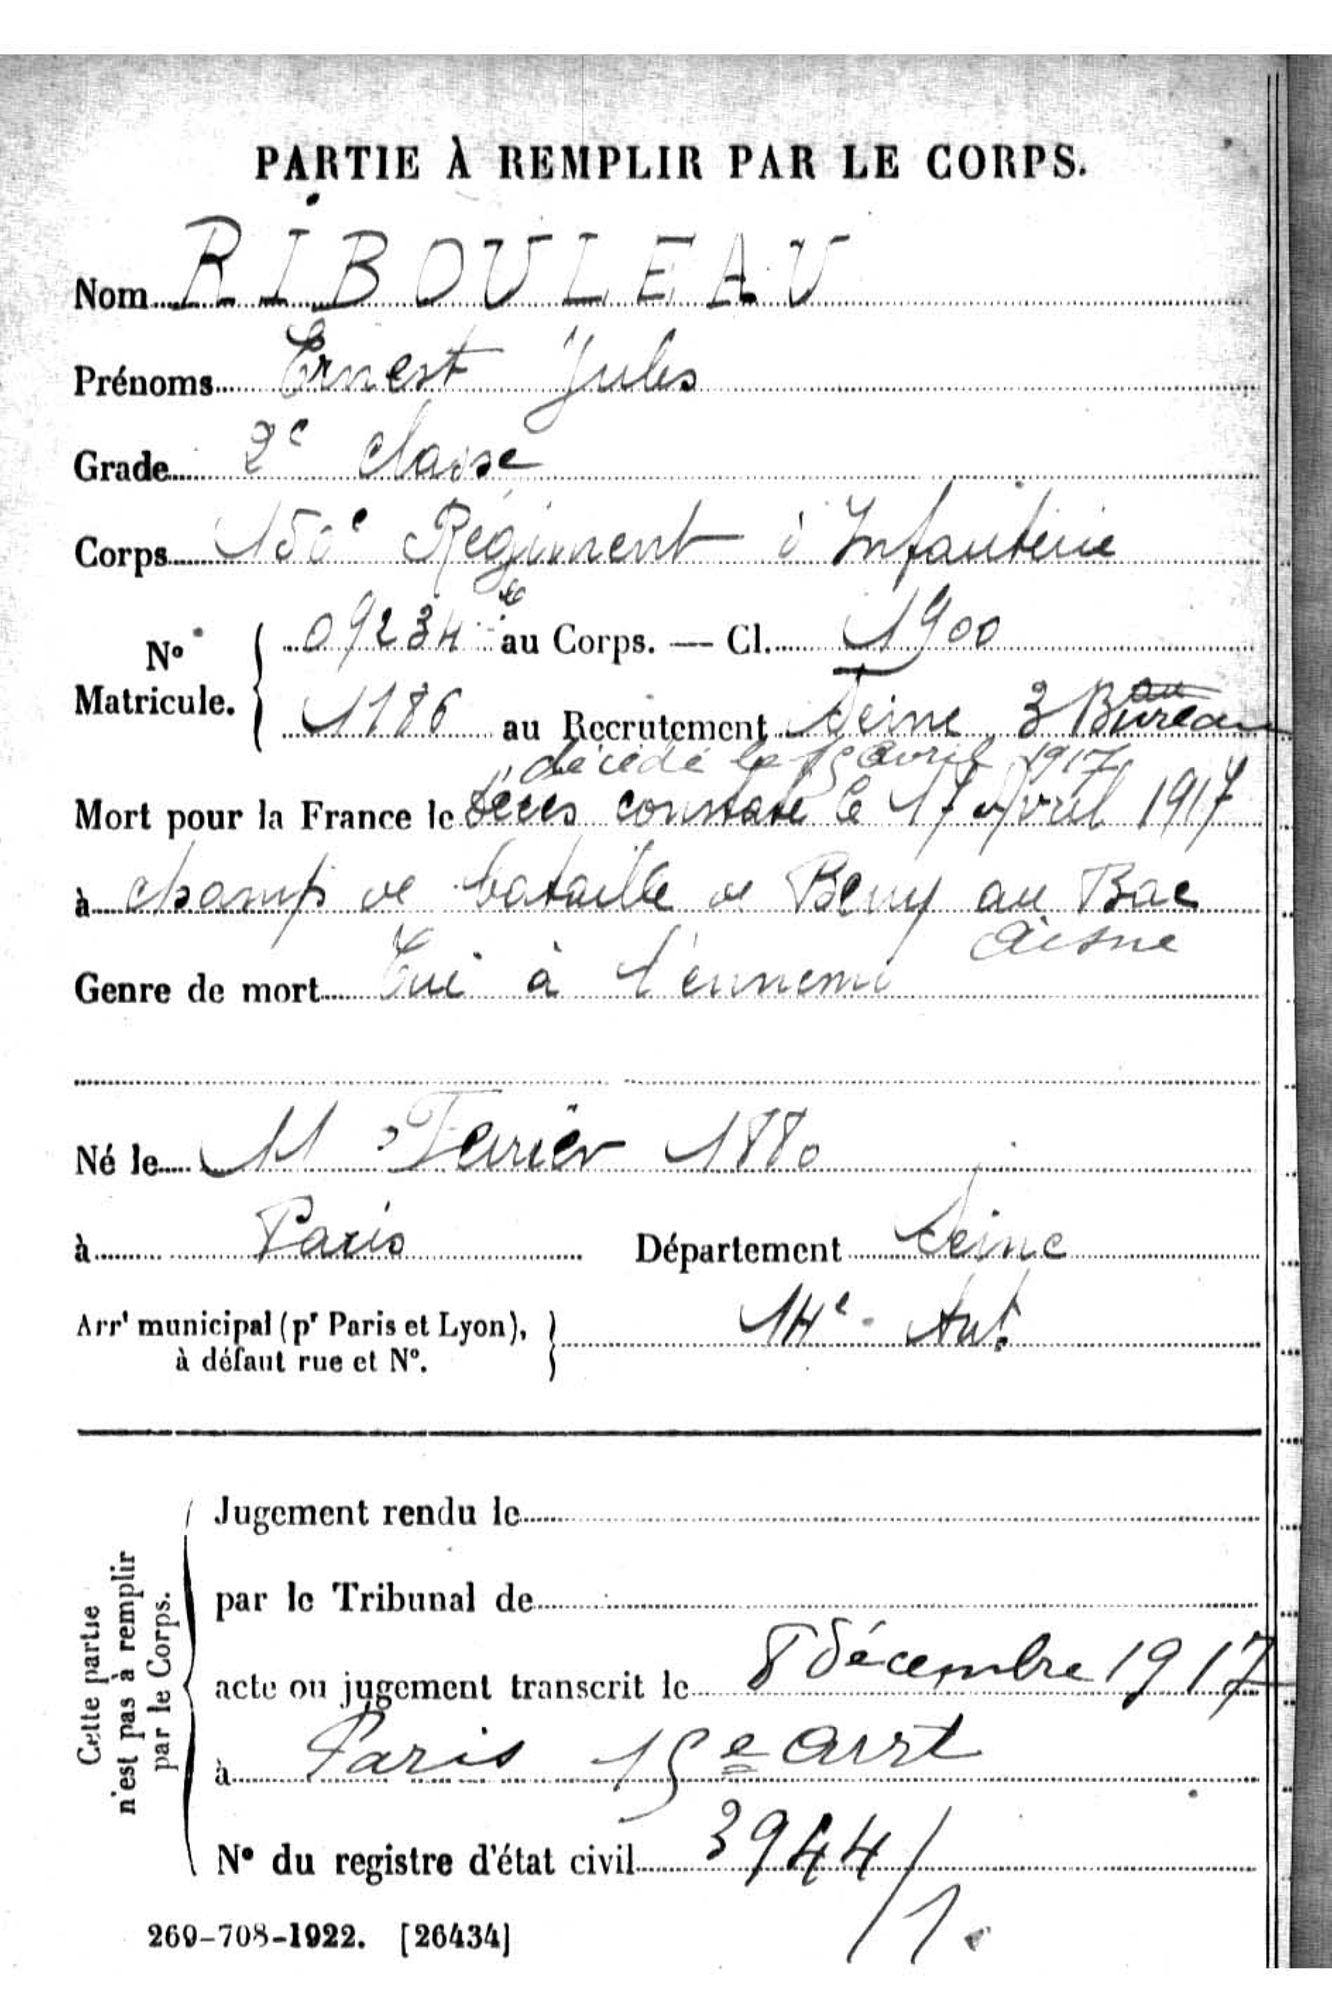 PARTIE À REMPLIR PAR LE CORPS.
Nom RIBOULEAU
Prénoms Ernest Jules
Grade 2e classe
Corps 150e Régiment d'Infanterie
No Matricule. { 09234 au Corps. — Cl. 1900
1186 au Recrutement Seine 3 Bureau
décédé le 15 avril 1917
Mort pour la France le décès constaté le 17 Avril 1917
à champ de bataille de Berry au Bac
Aisne
Genre de mort Tué à l'ennemi
Né le 11 Février 1880
à Paris Département Seine
Arrt municipal (pr Paris et Lyon), à défaut rue et No. } 14e Arrt
Cette partie n'est pas à remplir par le Corps.
Jugement rendu le
par le Tribunal de
acte ou jugement transcrit le 8 décembre 1917
à Paris 15e arrt
No du registre d'état civil 3944/1.
269-708-1922. [26434]